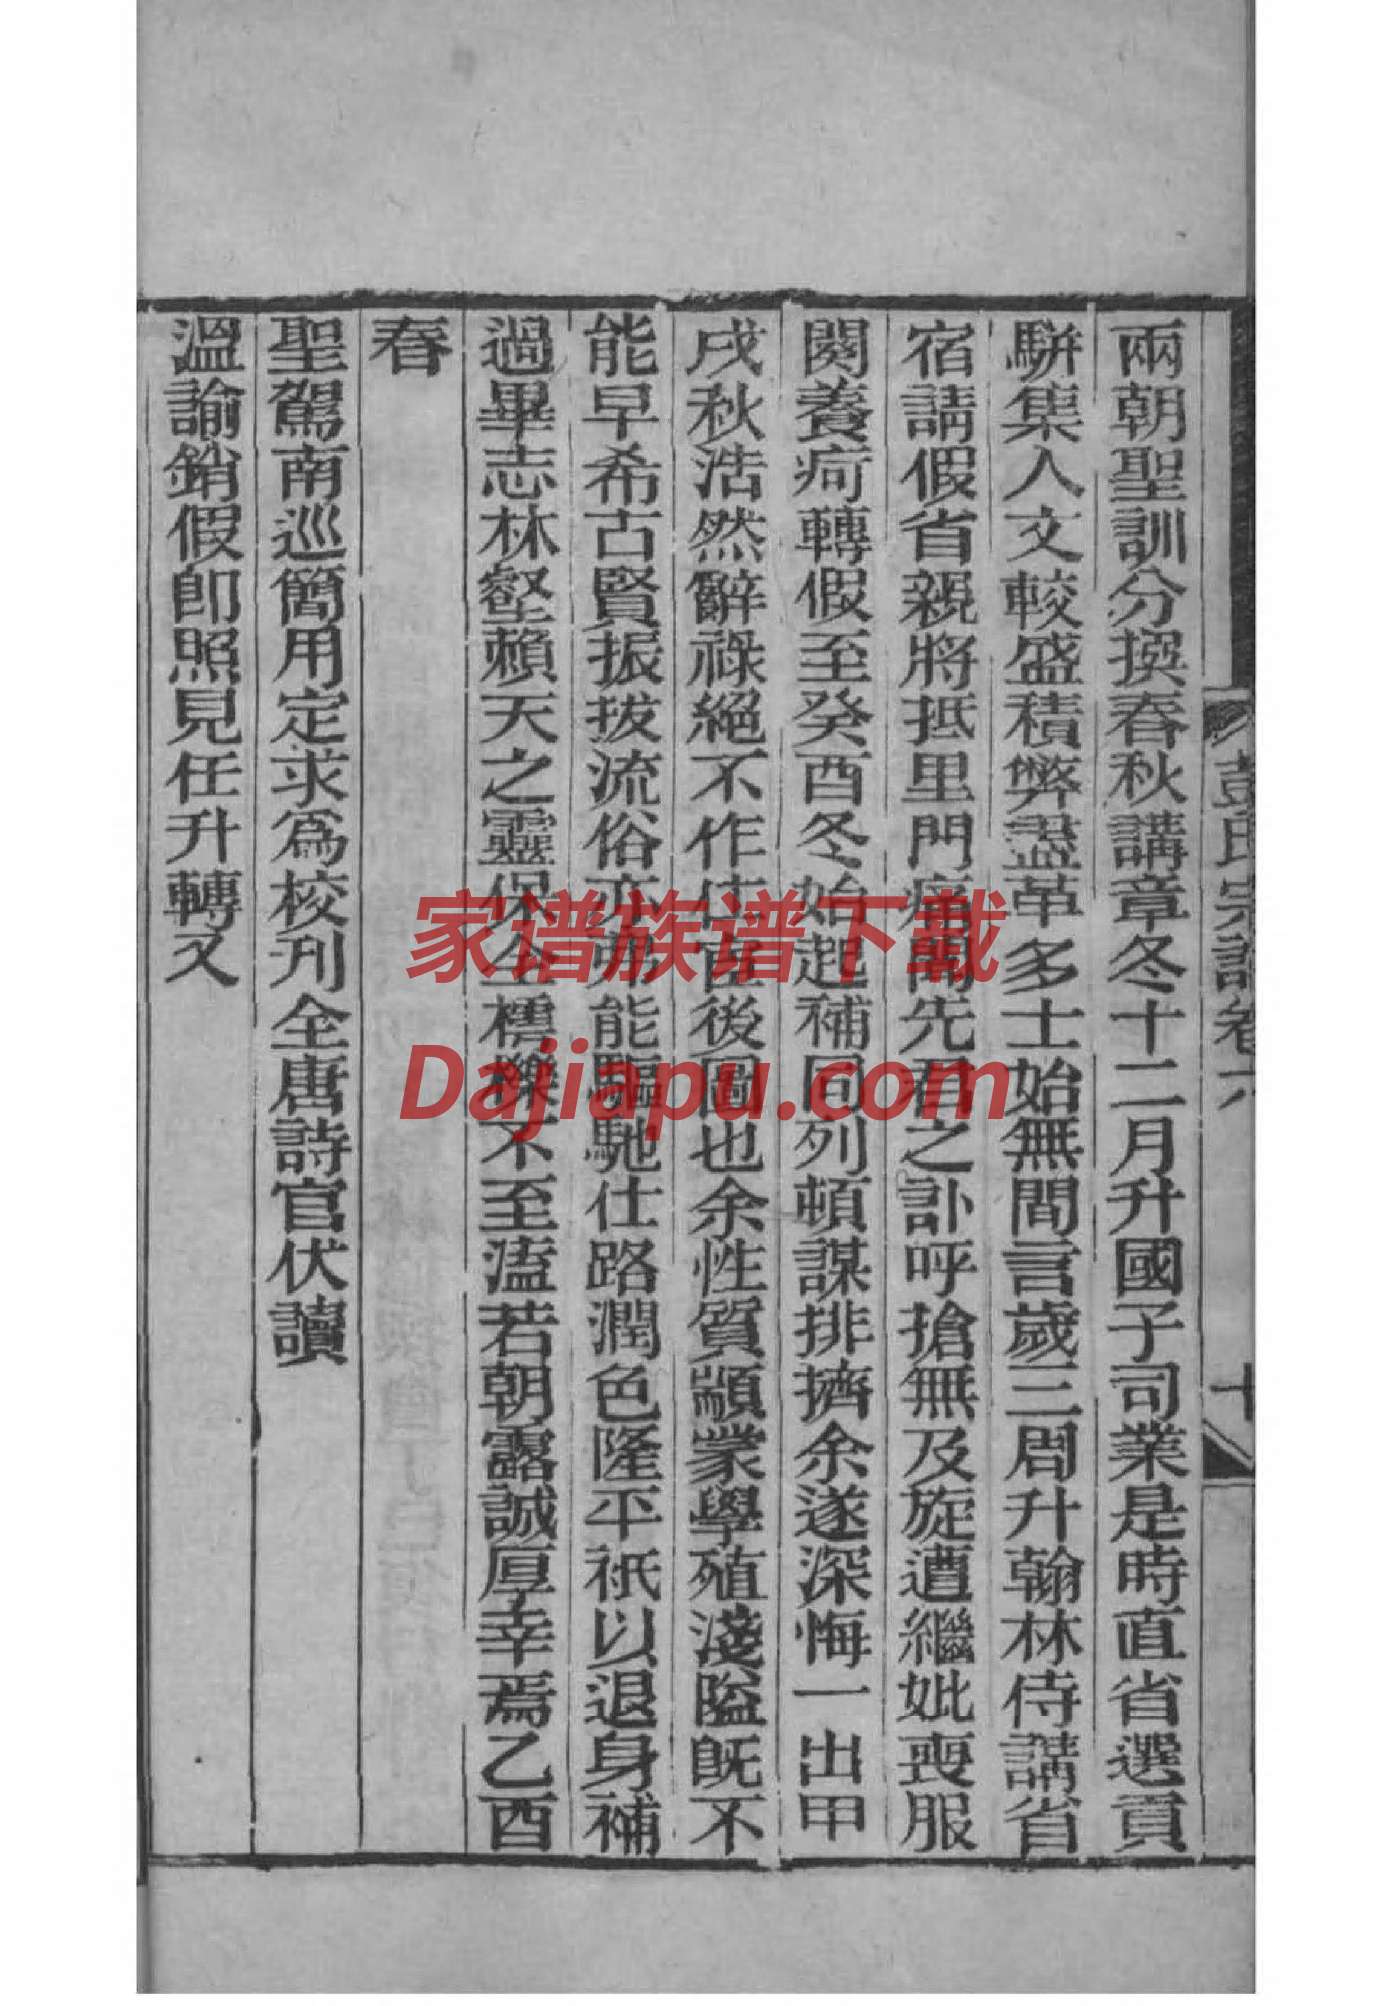 兩朝聖訓分撰春秋講章冬十二月升國子司業是時直省選貢
駢集人文較盛積弊盡革多士始無間言歲三周升翰林侍講省
宿請假省親將抵里門痛聞先君之訃呼搶無及旋遭繼妣喪服
闋養疴轉假至癸酉冬始起補同列頓謀排擠余遂深悔一出甲
戌秋浩然辭祿絕不作仕宦後圖也余性質顓蒙學殖淺隘既不
能早希古賢振拔流俗亦弗能驅馳仕路潤色隆平祇以退身補
過畢志林壑賴天之靈保全樗櫟不至溘若朝露誠厚幸焉乙酉
春
聖駕南巡簡用定求為校刋全唐詩官伏讀
溫諭銷假卽照見任升轉又
彭氏宗譜卷六
十
家谱族谱下载
Dajiapu.com